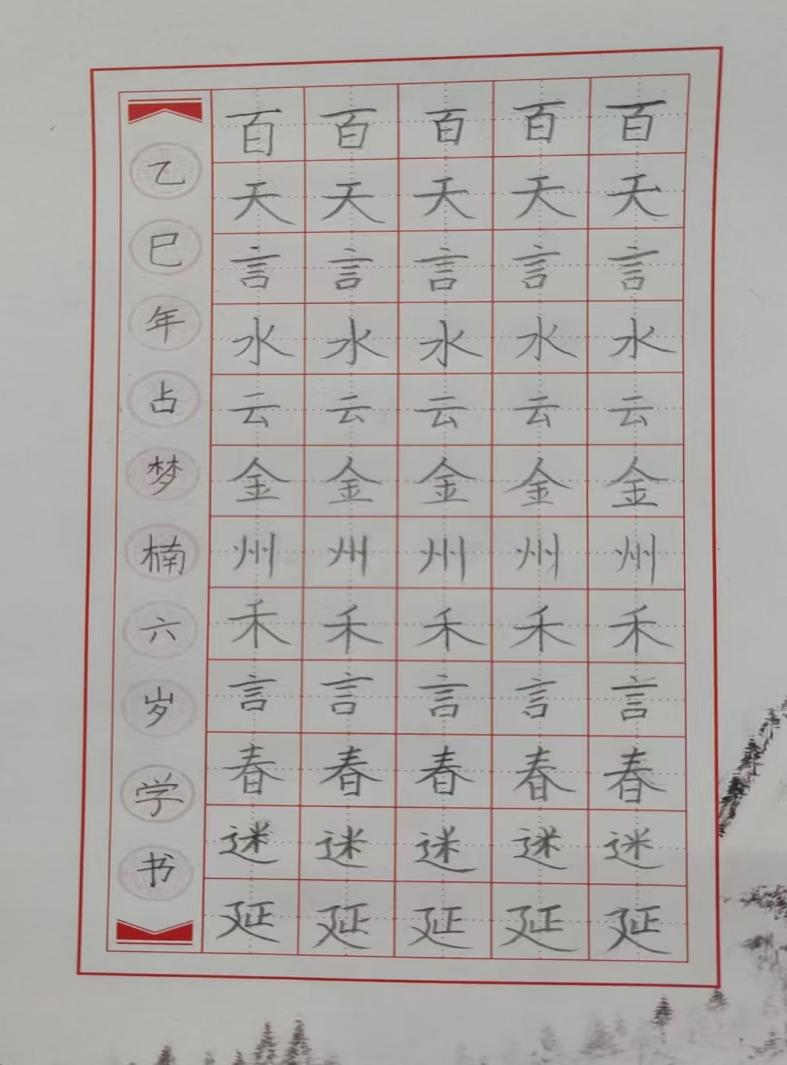 乙巳年占梦楠六岁学书
百百百百百
天天天天天
言言言言言
水水水水水
云云云云云
金金金金金
州州州州州
禾禾禾禾禾
言言言言言
春春春春春
迷迷迷迷迷
延延延延延